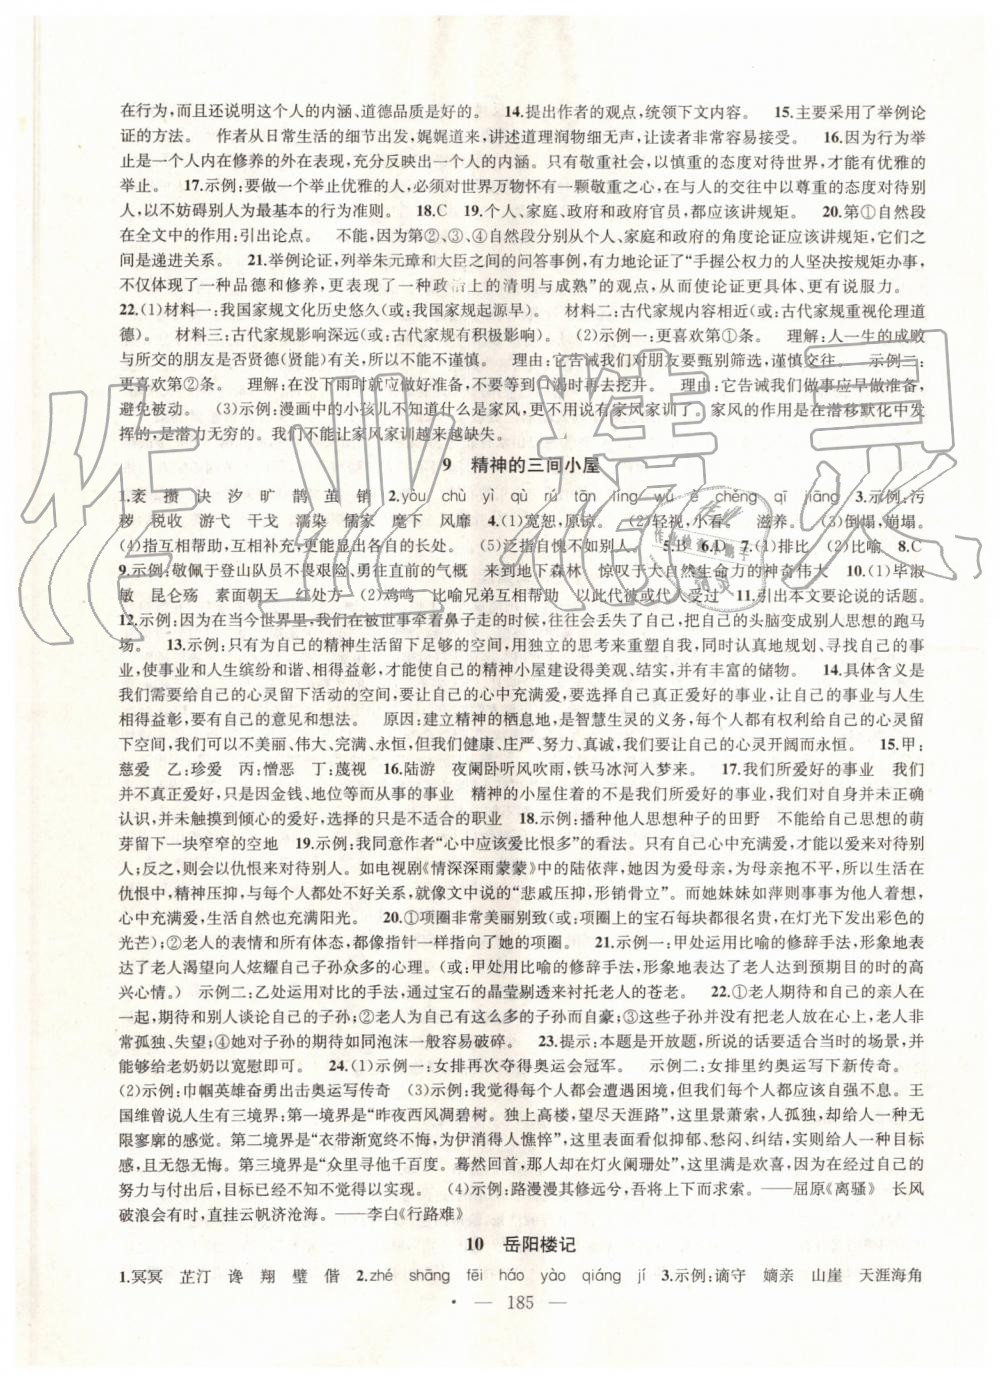 在行为,而且还说明这个人的内涵、道德品质是好的。 14.提出作者的观点,统领下文内容。 15.主要采用了举例论
证的方法。 作者从日常生活的细节出发,娓娓道来,讲述道理润物细无声,让读者非常容易接受。 16.因为行为举
止是一个人内在修养的外在表现,充分反映出一个人的内涵。只有敬重社会,以慎重的态度对待世界,才能有优雅的
举止。 17.示例:要做一个举止优雅的人,必须对世界万物怀有一颗敬重之心,在与人的交往中以尊重的态度对待别
人,以不妨碍别人为最基本的行为准则。 18.C 19.个人、家庭、政府和政府官员,都应该讲规矩。 20.第①自然段
在全文中的作用:引出论点。 不能,因为第②、③、④自然段分别从个人、家庭和政府的角度论证应该讲规矩,它们之
间是递进关系。 21.举例论证,列举朱元璋和大臣之间的问答事例,有力地论证了“手握公权力的人坚决按规矩办事,
不仅体现了一种品德和修养,更体现了一种政治上的清明与成熟”的观点,从而使论证更具体、更有说服力。
22.(1)材料一:我国家规文化历史悠久(或:我国家规起源早)。 材料二:古代家规内容相近(或:古代家规重视伦理道
德)。 材料三:古代家规影响深远(或:古代家规有积极影响)。 (2)示例一:更喜欢第①条。 理解:人一生的成败
与所交的朋友是否贤德(贤能)有关,所以不能不谨慎。 理由:它告诫我们对朋友要甄别筛选,谨慎交往。 示例二:
更喜欢第②条。 理解:在没下雨时就应做好准备,不要等到口渴时再去挖井。 理由:它告诫我们做事应早做准备,
避免被动。 (3)示例:漫画中的小孩儿不知道什么是家风,更不用说有家风家训了。家风的作用是在潜移默化中发
挥的,是潜力无穷的。我们不能让家风家训越来越缺失。
9 精神的三间小屋
1.袤 攒 诀 汐 旷 鹊 茧 销 2.yòu chù yì qù rú tān líng wù è chěng qī jiāng 3.示例:污
秽 税收 游弋 干戈 濡染 儒家 麾下 风靡 4.(1)宽恕,原谅。 (2)轻视,小看。 滋养。 (3)倒塌,崩塌。
(4)指互相帮助,互相补充,更能显出各自的长处。 (5)泛指自愧不如别人。 5.B 6.D 7.(1)排比 (2)比喻 8.C
9.示例:敬佩于登山队员不畏艰险、勇往直前的气概 来到地下森林 惊叹于大自然生命力的神奇伟大 10.(1)毕淑
敏 昆仑殇 素面朝天 红处方 (2)鸡鸣 比喻兄弟互相帮助 以此代彼或代人受过 11.引出本文要论说的话题。
12.示例:因为在当今世界里,我们在被世事牵着鼻子走的时候,往往会丢失了自己,把自己的头脑变成别人思想的跑马
场。 13.示例:给自己的精神生活留下足够多的空间,用独立的思考来重塑自我,认真地规划、寻找自己真爱的事
业,使事业和人生缤纷和谐、相得益彰,才能使自己的精神小屋建设得美观、结实,并有丰富的储物。 14.具体含义是
我们需要给自己的心灵留下活动的空间,要让自己的心中充满爱,要选择自己真正爱好的事业,让自己的事业与人生
相得益彰,要有自己的意见和想法。 原因:建立精神的栖息地,是智慧生灵的义务,每个人都有权利给自己的心灵留
下空间,我们可以不美丽、伟大、完满、永恒,但我们健康、庄严、努力、真诚,我们要让自己的心灵开阔而永恒。 15.甲:
慈爱 乙:珍爱 丙:憎恶 丁:蔑视 16.陆游 夜阑卧听风吹雨,铁马冰河入梦来。 17.我们所爱好的事业 我们
并不真正爱好,只是因金钱、地位等而从事的事业 精神的小屋住着的不是我们所爱好的事业,我们对自身并未正确
认识,并未触摸到倾心的爱好,选择的只是不适合的职业 18.示例:播种他人思想种子的田野 不能给自己思想的萌
芽留下一块窄窄的空地 19.示例:我同意作者“心中应该爱比恨多”的看法。只有自己心中充满爱,才能以爱来对待别
人;反之,则会以仇恨来对待别人。如电视剧《情深深雨蒙蒙》中的陆依萍,她因为爱母亲,为母亲抱不平,所以生活在
仇恨中,精神压抑,与每个人都处不好关系,就像文中说的“悲戚压抑,形销骨立”。而她妹妹如萍则时时为他人着想,
心中充满爱,生活自然也充满阳光。 20.①项圈非常美丽别致(或:项圈上的宝石每块都很名贵,在灯光下发出彩色的
光芒);②老人的表情和所有体态,都像指针一样指向了她的项圈。 21.示例一:甲处运用比喻的修辞手法,形象地表
达了老人渴望向人炫耀自己子孙众多的心理。(或:甲处用比喻的修辞手法,形象地表达了老人达到预期目的时的高
兴心情。) 示例二:乙处运用对比的手法,通过宝石的晶莹剔透来衬托老人的苍老。 22.①老人期待和自己的亲人在
一起,期待和别人谈论自己的子孙;②老人为自己有这么多的子孙而自豪;③这些子孙并没有陪在老人身边,老人非
常孤独、失望;④她对子孙的期待如同泡沫一般容易破碎。 23.提示:本题是开放题,所说的话要适合当时的场景,并
能够给老奶奶以宽慰即可。 24.(1)示例一:女排再次夺得奥运会冠军。 示例二:女排里约奥运写下新传奇。
(2)示例:巾帼英雄奋勇出击奥运写传奇 (3)示例:我觉得每个人都会遭遇困境,但我们每个人都应该自强不息。王
国维曾说人生有三境界:第一境界是“昨夜西风凋碧树。独上高楼,望尽天涯路”,这里景萧索,人孤独,却给人一种无
限寥廓的感觉。第二境界是“衣带渐宽终不悔,为伊消得人憔悴”,这里表面看似抑郁、愁闷、纠结,实则给人达到目标
感,且无怨无悔。第三境界是“众里寻他千百度。蓦然回首,那人却在灯火阑珊处”,这里是满是欢喜,因自己在历经的
努力与付出后,目标已经不知不觉得以实现。 (4)示例:路漫漫其修远兮,吾将上下而求索。——屈原《离骚》 长风
破浪会有时,直挂云帆济沧海。——李白《行路难》
10 岳阳楼记
1.冥冥 芷汀 谗 翔 璧 偕 2.zhé shāng fēi háo yào qiáng jí 3.示例:谪守 嫡亲 山崖 天涯海角
— 185 —